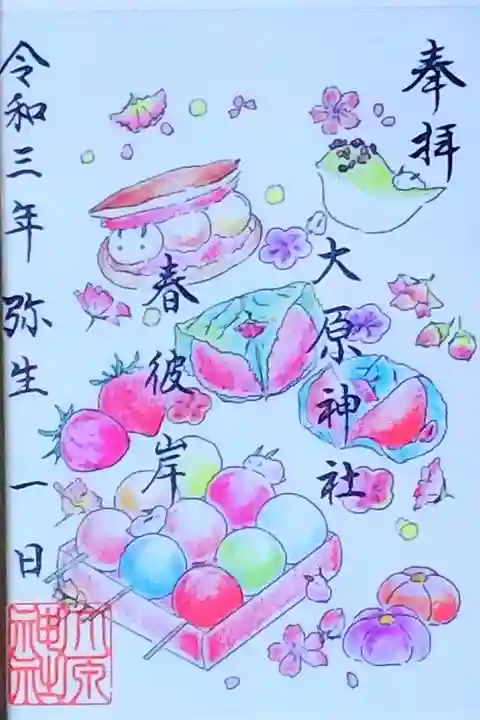 奉拝
大原神社
春彼岸
令和三年 弥生 一日
大原神社